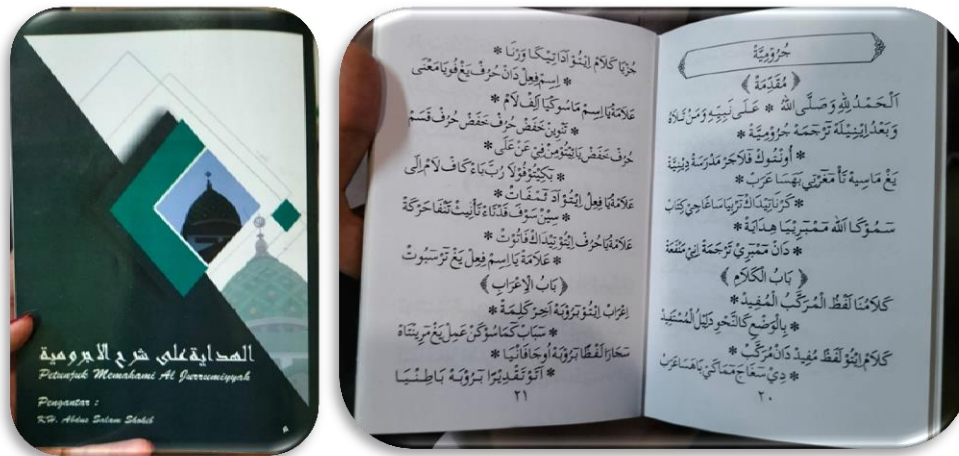 الهداية على شرح الاجرومية
Petunjuk Memahami Al Jurrumiyyah
Pengantar :
KH. Abdus Salam Shohib
جُرُوْمِيَّةْ
﴿ مُقَدِّمَةْ ﴾
اَلْحَمْدُ لِلّٰهِ وَصَلَّى اللّٰهُ * عَلَى نَبِيِّهِ وَمَنْ تَلَاهُ
وَبَعْدُ اِيْنِيْلَهْ تَرْجَمَهْ جُرُوْمِيَّةْ *
* أُونْتُوكْ فَلَاجَرْ مَدْرَسَةْ دِيْنِيَّةْ
يَڠْ مَاسِيهْ تَأْ مَڠَرْتِي بَهَسَا عَرَبْ *
* كَرْنَا تِيْدَاكْ تَرْبِيَاسَا ڠَاجِيْ كِتَابْ
سَمُوْڮَا اللّٰه مَمْبَرِيْيَا هِدَايَةْ *
* دَانْ مَمْبَرِيْ تَرْجَمَةْ اِنِيْ مَنْفَعَةْ
﴿ بَابُ الْكَلَامِ ﴾
كَلَامُنَا لَفْظُ الْمُرَكَّبُ الْمُفِيْدْ *
* بِالْوَضْعِ كَالنَّحْوِ دَلِيْلُ الْمُسْتَفِيْدْ
كَلَامْ اِيْتُوْ لَفْظْ مُفِيْدْ دَانْ مُرَكَّبْ *
* دِيْ سَڠَاجَ مَمَاكَيْ بَاهَسَا عَرَبْ
٢٠
جُزْيَا كَلَامْ اِيْتُوْ آدَا تِيْڮَا وَرْنَا *
* اِسِمْ فِعِلْ دَانْ حُرُفْ يَڠْ فُوْيَا مَعْنَى
عَلَامَةْ يَا اِسِمْ مَاسُوكْيَا اَلِفْ لَامْ *
* تَنْوِيْنْ خَفَضْ حُرُفْ خَفَضْ حُرُفْ قَسَمْ
حُرُفْ خَفَضْ يَايِيْتُوْ مِنْ فِيْ عَنْ عَلَى *
* بَڮِيْتُوْ فُوْلَا رُبَّ بَاءْ كَافْ لَامْ اِلَى
عَلَامَةْ يَا فِعِلْ اِيْتُوْ آدَ تْمْفَاتْ *
* سِيْنْ سَوْفَ قَدْ تَاءْ تَأْنِيْثْ تَنْفَا حَرَكَةْ
عَلَامَةْ يَا حُرُفْ اِيْتُوْ تِيْدَاكْ فَاتُوْتْ *
* عَلَامَةْ يَا اِسِمْ فِعِلْ يَڠْ تَرْسَبُوتْ
﴿ بَابُ الْاِعْرَابِ ﴾
اِعْرَابْ اِيْتُوْ بَرُوْبَهْ اَخِرْ كَلِمَةْ *
* سَبَابْ كَمَاسُوْكَنْ عَمِلْ يَڠْ مَرِيْنْتَاهْ
سَچَارَا لَفْظًا بَرُوْبَهْ اُوْچَافَانْيَا *
* اَتَوْ تَقْدِيْرًا بَرُوْبَهْ بَاطِنْيَا
٢١